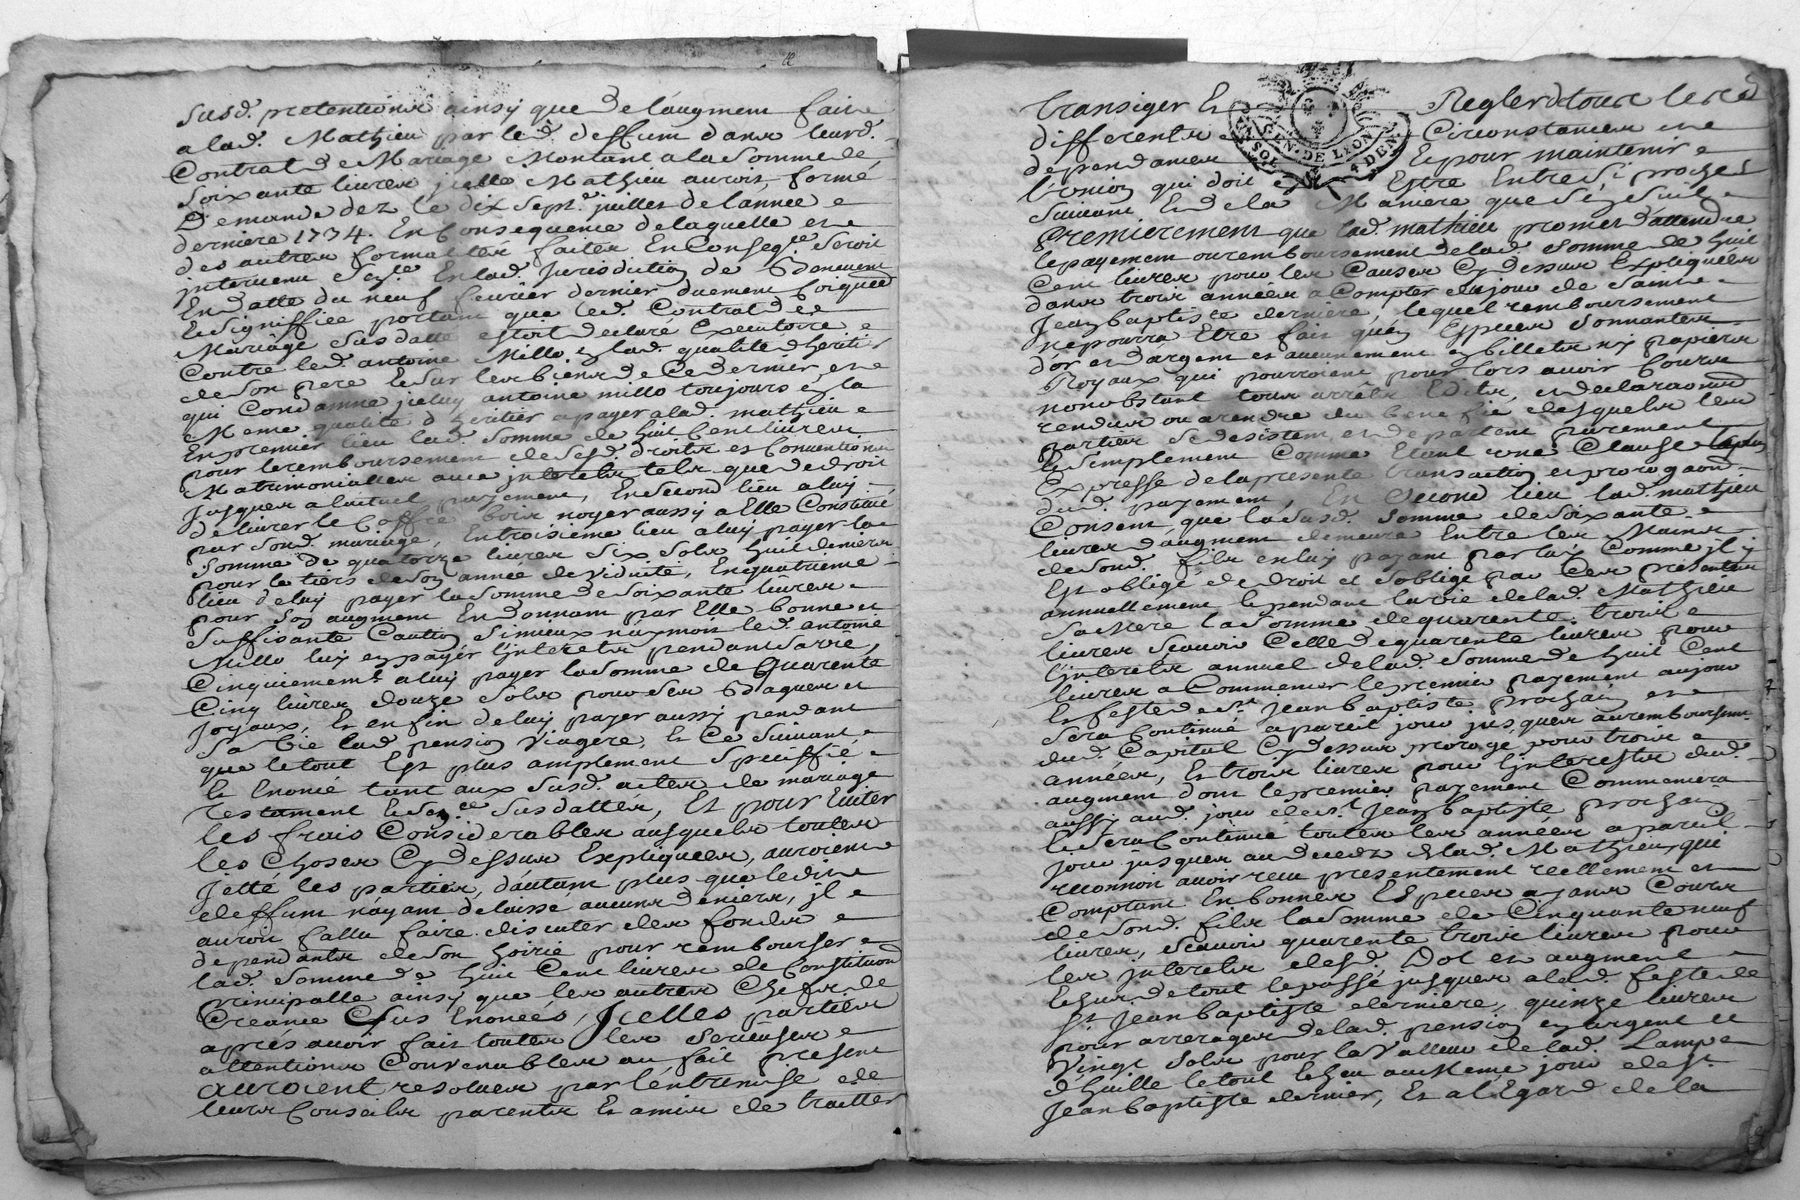 susd. pretentions ainsy que de l'augment fait
a lad. Mathieu par led. deffunt dans leurd.
Contrat de Mariage Montant a la somme de
soixante livres jcelle Mathieu auroit formé
Demande dez le dix sept.e juillet de l'année
derniere 1734. En Consequence de laquelle et
des autres formalités faites En Conseq.ce seroit
intervenu En lad. Jurisdiction de
En datte du neuf fevrier dernier duement
Et signiffiée portant que led. Contrat de
Mariage susdatté estoit declaré Executoire
Contre led. antoine Millo lad. qualité d'heritier
de son pere et sur les biens de Ce dernier, et
qui Condamne jceluy antoine millo toujours En la
Meme qualité d'heritier a payer a lad. mathieu
En premier lieu lad. somme de huit Cent livres
pour le remboursement de sesd. droits et Conventions
Matrimonialles avec jnterets tels que de droit
jusques a l'actuel payement, En second lieu a luy
delivrer le Coffre bois noyer aussy a Elle Constitué
par sond. mariage, En troisieme lieu a luy payer la
somme de quatorze livres six sols huit deniers
pour le tiers de son année de viduité, En quatrieme
lieu de luy payer la somme de soixante livres
pour son augment En donnant par Elle bonne et
suffisante Caution si mieux n'aymoit led. antoine
Millo luy en payer l'jnterets pendant sa vie,
Cinquiemem.t a luy payer la somme de Quarente
Cinq livres douze sols pour ses Bagues et
Joyaux, Et en fin de luy payer aussy pendant
sa vie lad. pension viagere, Et Ce suivant
que le tout Est plus amplement Specifié
Et Enoncé tant aux susd. actes de mariage
testament et sen.ce susdattés, Et pour Eviter
les frais Considerables ausquels toutes
les Choses Cy dessus Expliquées, auroient
Jetté les parties, d'autant plus que ledit
deffunt n'ayant delaissé aucuns deniers, jl
auroit fallu faire discuter des fonds
dependants de son hoirie pour rembourser
lad. somme de huit Cent livres de Constitution
principalle ainsy que les autres Chefs de
Creance sus Enoncés, Jcelles parties
aprés avoir fait toutes les serieuses
attentions Convenables au fait present
auroient resolues par l'entremise de
leurs Conseils parents Et amis de traitter
transiger Et Regler de tous lesd
differents Circonstances et
dependances Et pour maintenir
l'union qui doit Estre Entre si proches
suivant Et de la Maniere que s'Ensuit
Premierement que lad. mathieu promet d'attendre
le payement ou remboursement de lad. somme de huit
Cent livres pour les Causes Cy dessus Expliquées
dans trois années a Compter du jour de saint
Jean baptiste derniere, lequel remboursement
ne pourra Etre fait qu'En Especes sonnantes
d'or et d'argent et aucunement En billets ny papiers
Royaux qui pourroient pour lors avoir Cours
nonobstant tous arrêts Edits, et declarations
rendus ou a rendre du benefice desquels les
parties se desistent et departent purement
Et simplement Comme Etant une Clause
Expresse de la presente transaction et prorogaon
dud. payement, En Second lieu lad. mathieu
Consent que la susd. somme de soixante
livres d'augment demeure Entre les Mains
de sond. fils en luy payant par luy Comme jl y
Est obligé de droit et s'oblige par Ces presentes
annuellement Et pendant la vie de lad. Mathieu
sa Mere la somme de quarente trois
livres sçavoir Celle de quarente livres pour
l'jnterets annuel de lad. somme de huit Cent
livres a Commencer le premier payement au jour
Et feste de st Jean baptiste prochain et
sera Continué a pareil jour jusques au remboursem.t
dud. Capital Cy dessus prorogé pour trois
années, Et trois livres pour l'jnterests dud.
augment dont le premier payement Commencera
aussy aud. jour de st Jean baptiste prochain
Et sera Continué toutes les années a pareil
jour jusques au deceds de lad. Mathieu, qui
reconnoit avoir receu presentement reellement et
Comptant En bonnes Especes ayant Cours
de sond. fils la somme de Cinquante neuf
livres, sçavoir quarente trois livres pour
les jnterets desd. Dot et augment
Echus de tout le passé jusques a lad. feste de
st Jean baptiste derniere, quinze livres
pour arrerages de lad. pension en argent et
Vingt sols pour la Valleur de lad. Lampe
d'huille le tout Echeu au Meme jour de st
Jean baptiste dernier, Et a l'Egard de la
GEN. DE LYON